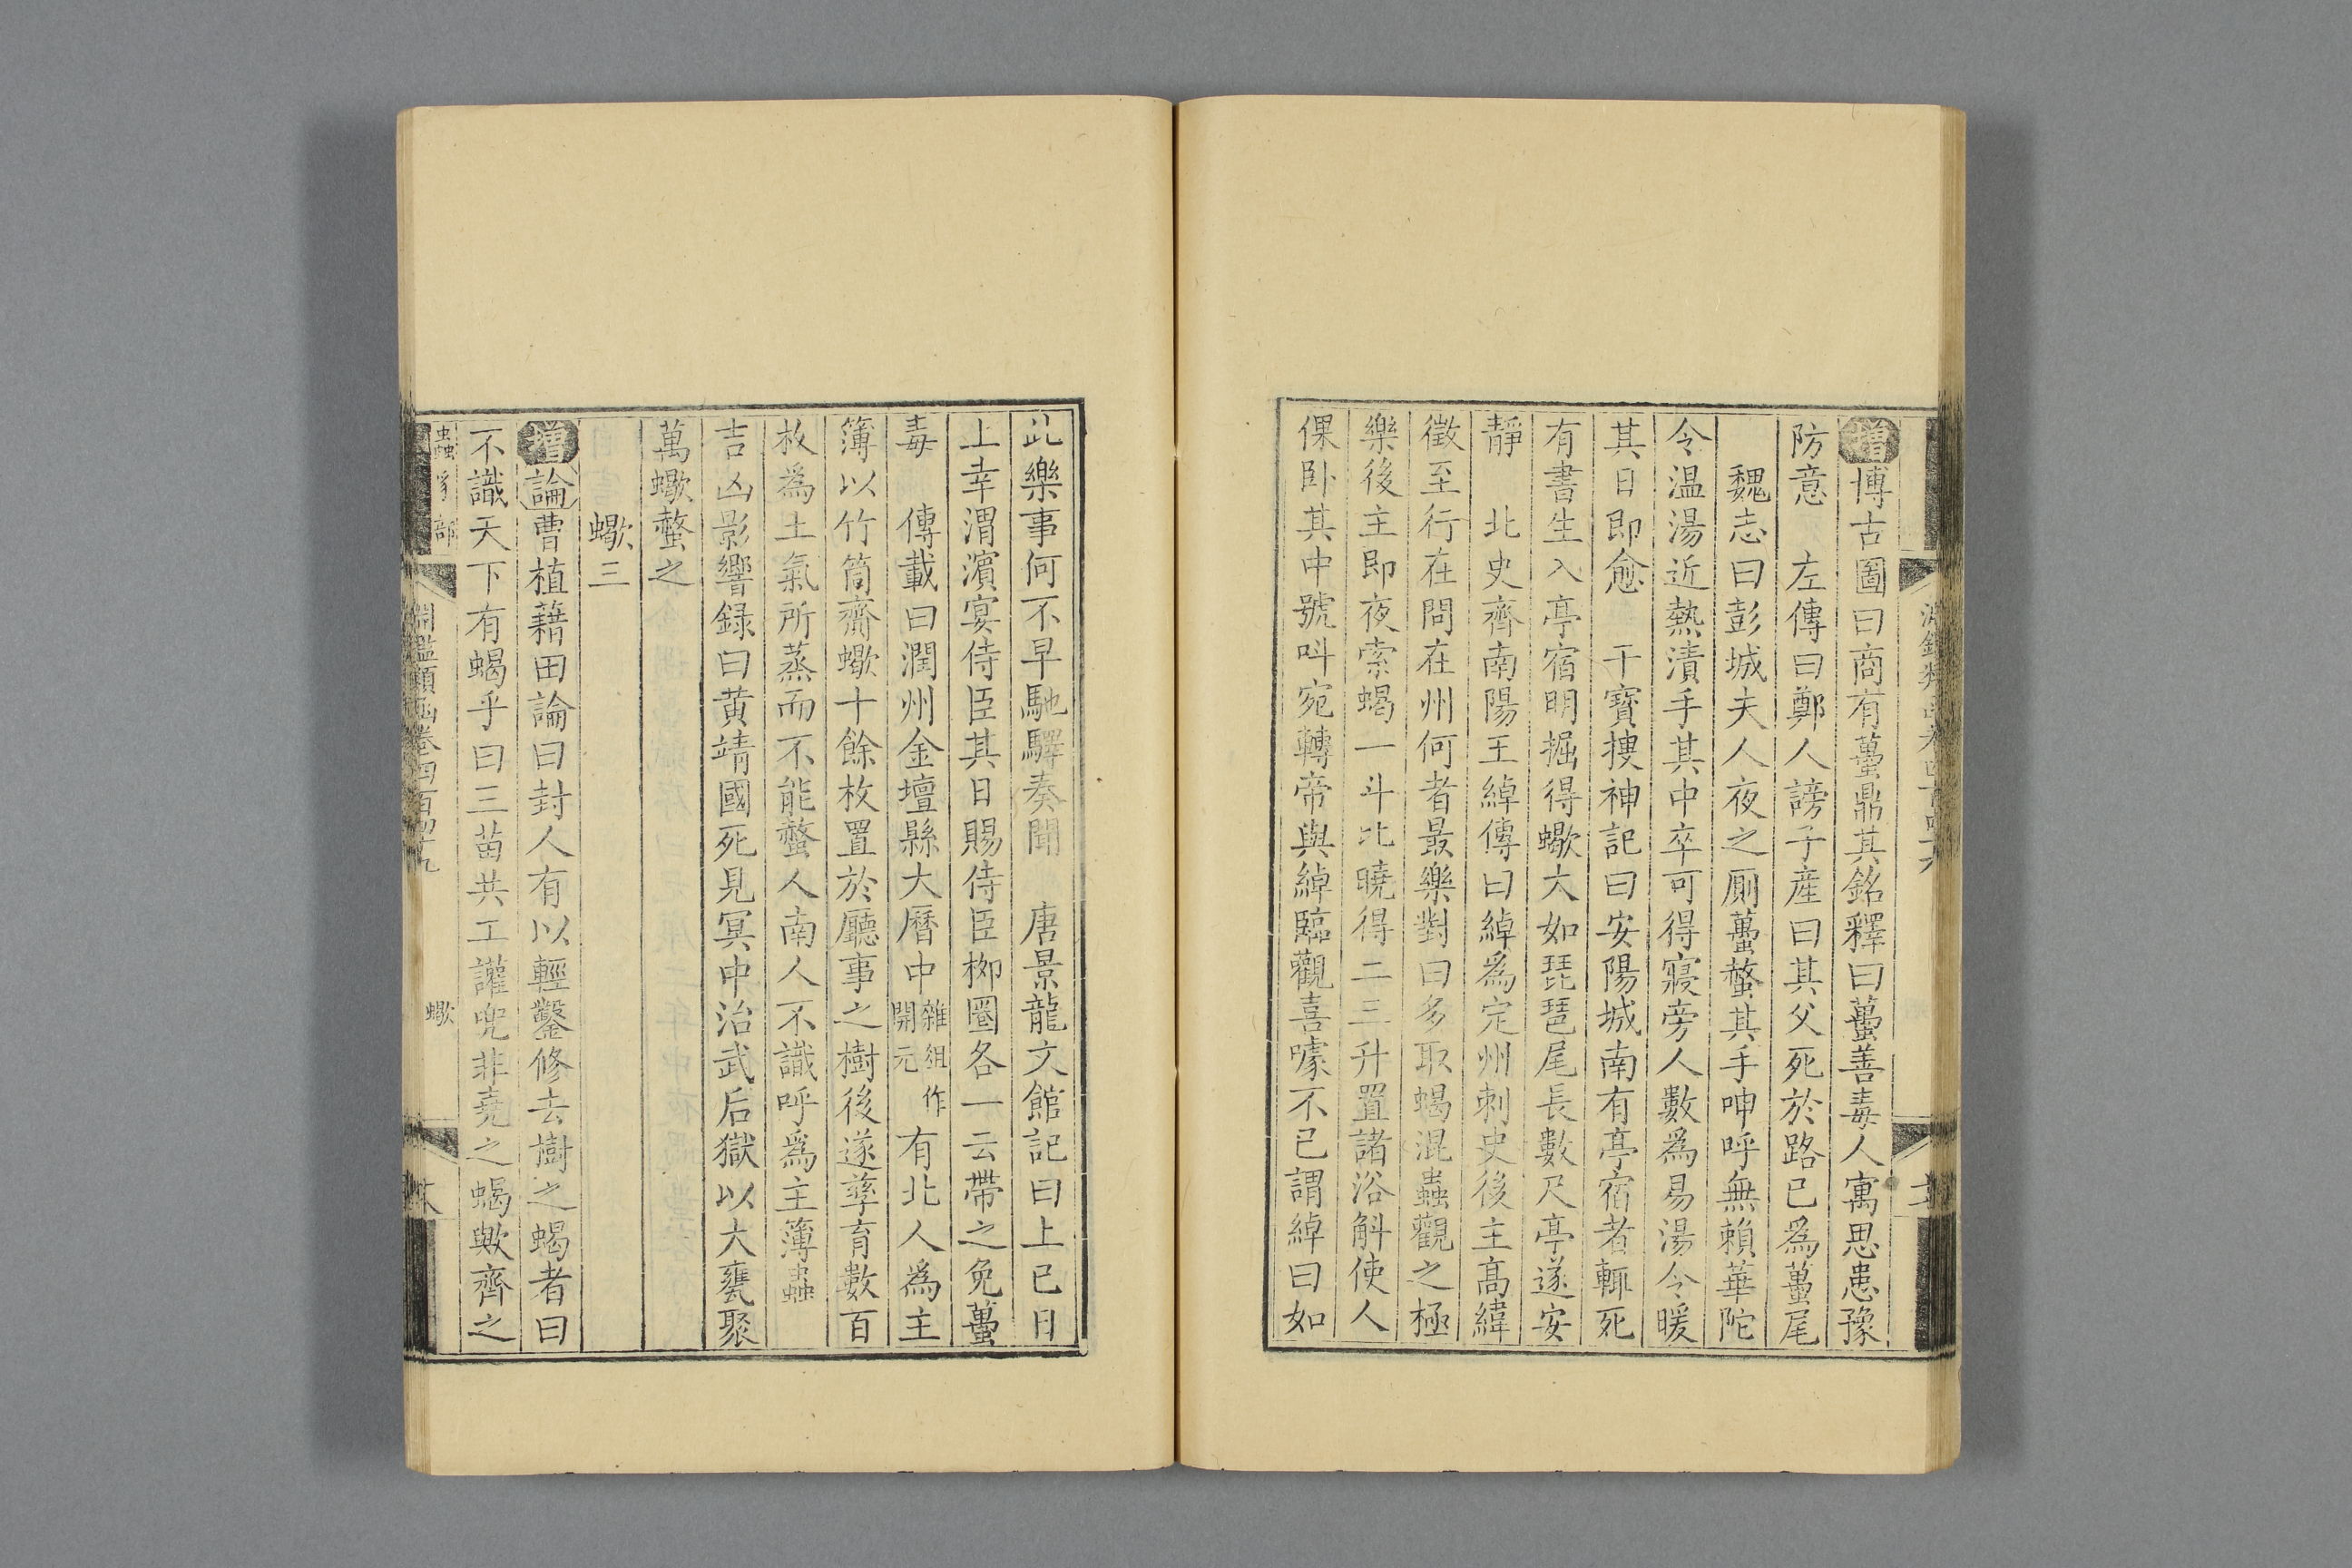 增博古圖曰商有蠆鼎其銘釋曰蠆善毒人寓思患豫
防意　左傳曰鄭人謗子產曰其父死於路已爲蠆尾
魏志曰彭城夫人夜之厠蠆螫其手呻呼無賴華陀
令温湯近熱漬手其中卒可得寢旁人數爲易湯令暖
其日即愈　干寶搜神記曰安陽城南有亭宿者輒死
有書生入亭宿明掘得蠍大如琵琶尾長數尺亭遂安
靜　北史齊南陽王綽傳曰綽爲定州刺史後主高緯
徵至行在問在州何者最樂對曰多取蝎混蟲觀之極
樂後主即夜索蝎一斗比曉得二三升置諸浴斛使人
倮卧其中號呌宛轉帝與綽臨觀喜噱不已謂綽曰如
此樂事何不早馳驛奏聞　唐景龍文館記曰上巳日
上幸渭濱宴侍臣其日賜侍臣栁圈各一云帶之免蠆
毒　傳載曰潤州金壇縣大曆中雜俎作開元有北人爲主
簿以竹筒齎蠍十餘枚置於廳事之樹後遂孳育數百
枚爲土氣所蒸而不能螫人南人不識呼爲主簿蟲
吉凶影響録曰黄靖國死見冥中治武后獄以大甕聚
萬蠍螫之
蠍三
增論曹植籍田論曰封人有以輕鑿修去樹之蝎者曰
不識天下有蝎乎曰三苗共工讙兜非堯之蝎歟齊之
蟲豸部
淵鑑類函卷四百四十九
蠍